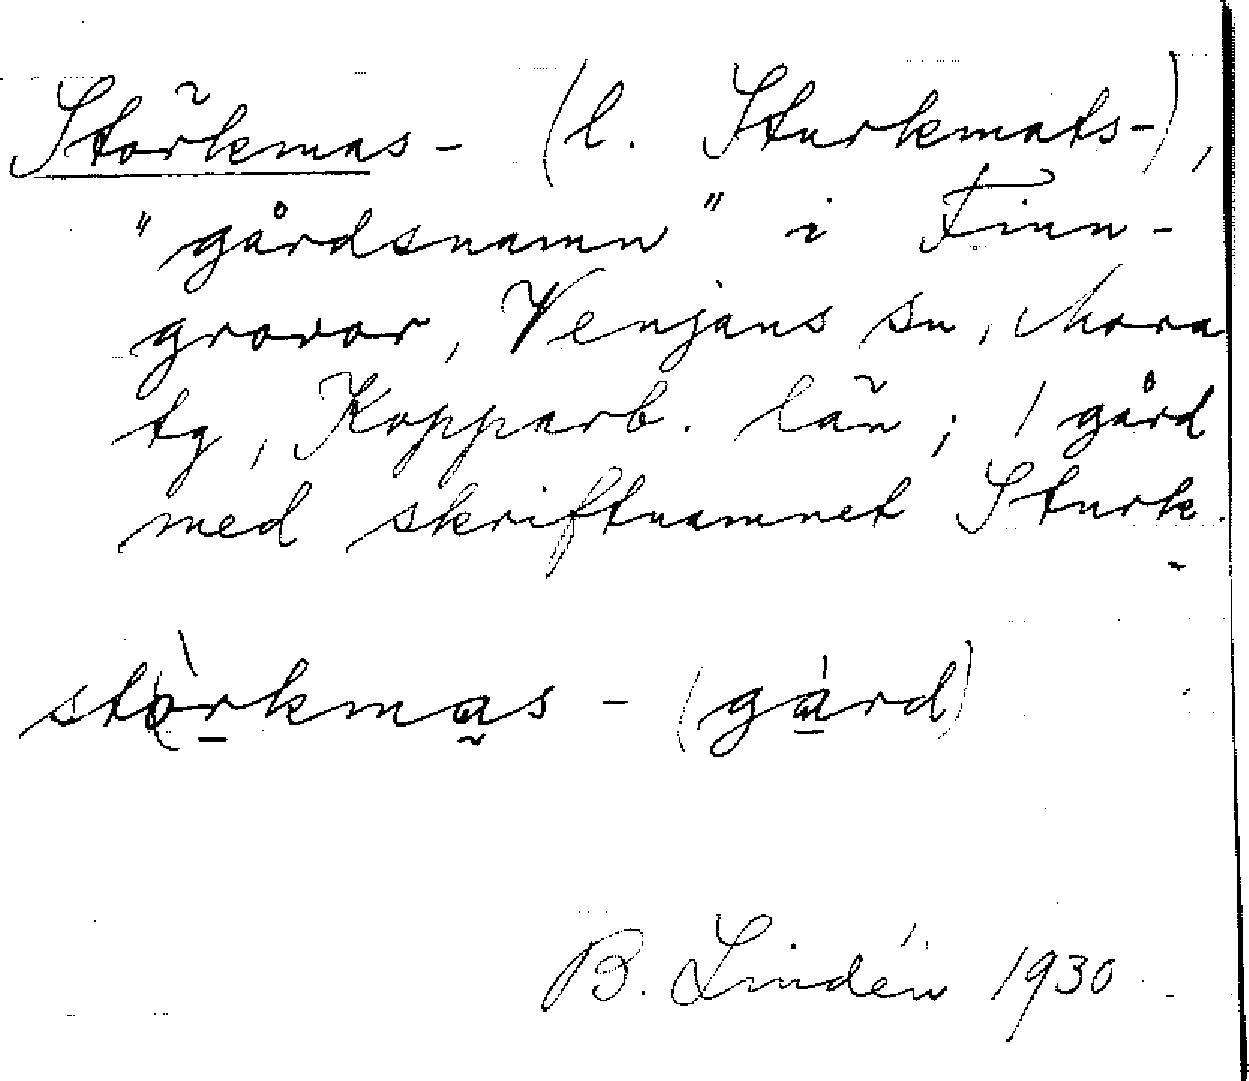 Störkmas- (l. Sturkmats-),
"gårdsnamn" i Finn-
grovor, Venjans sn, Mora
tg, Kopparb. län; 1 gård
med skriftnamnet Sturk.
stòrkmas- (gård)
B. Lindén 1930